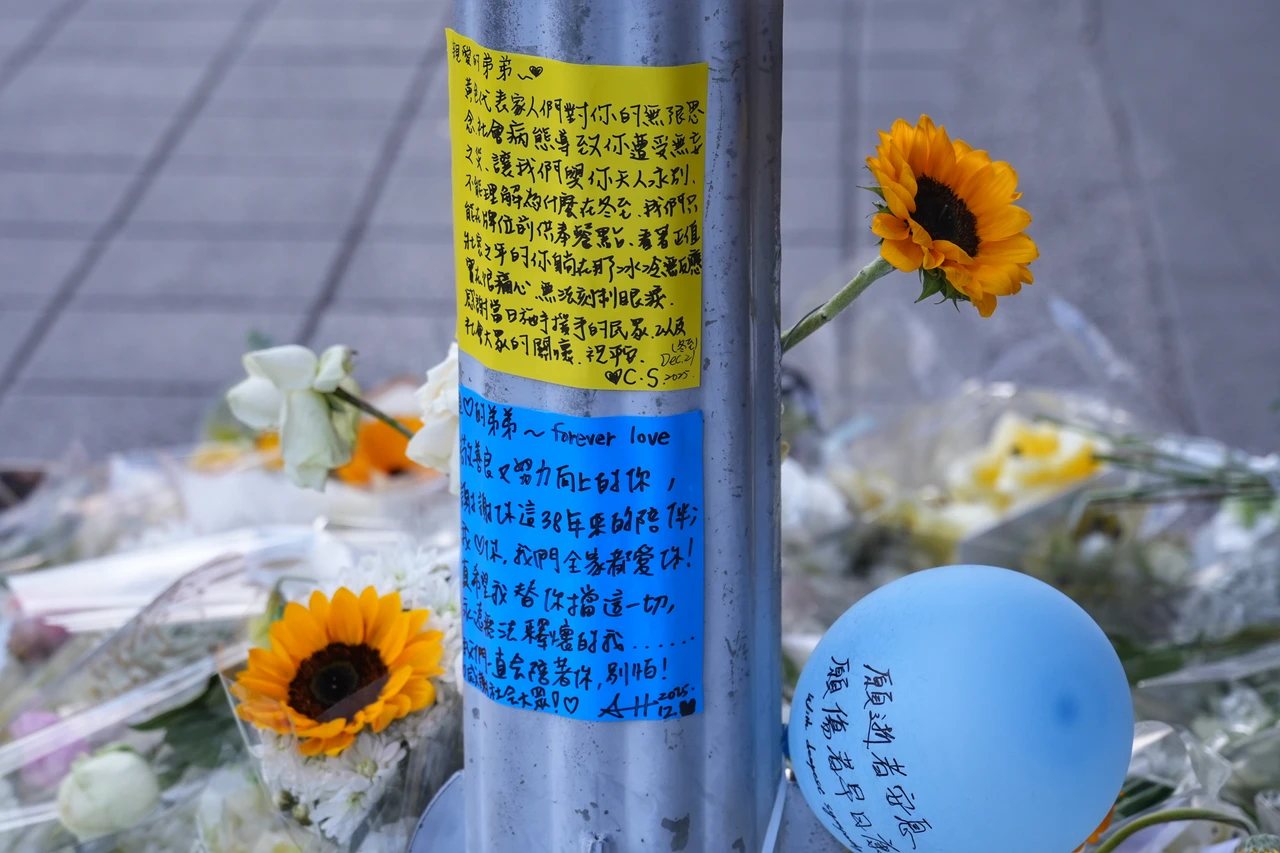 親愛的弟弟~♥
謹代表家人們對你的無限思
念.社會病態導致你遭受無妄
之災.讓我們與你天人永別.
不能理解為什麼在冬至.我們只
能在牌位前供奉餐點.看著正值
壯年的你躺在那冰冷
實在很痛心.無法
感謝當日施手援手的民眾.以及
社會大眾的關懷.祝平安.
(冬至)
Dec.21
♥C.S. 2025.
♡的弟弟~forever love
善良又努力向上的你,
謝謝你這38年來的陪伴;
我♡你,我們全家都愛你!
真希望我替你擋這一切,
永遠無法釋懷的我......
我們一直會陪著你,別怕!
感謝社會大眾!♡ AH 2025.
12.♥
願逝者安息
願傷者早日康
With deepest